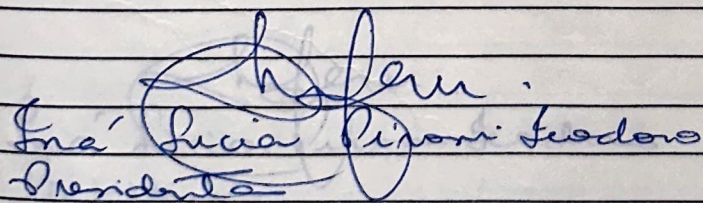 Iná Lucia Pironi Teodoro
Presidenta